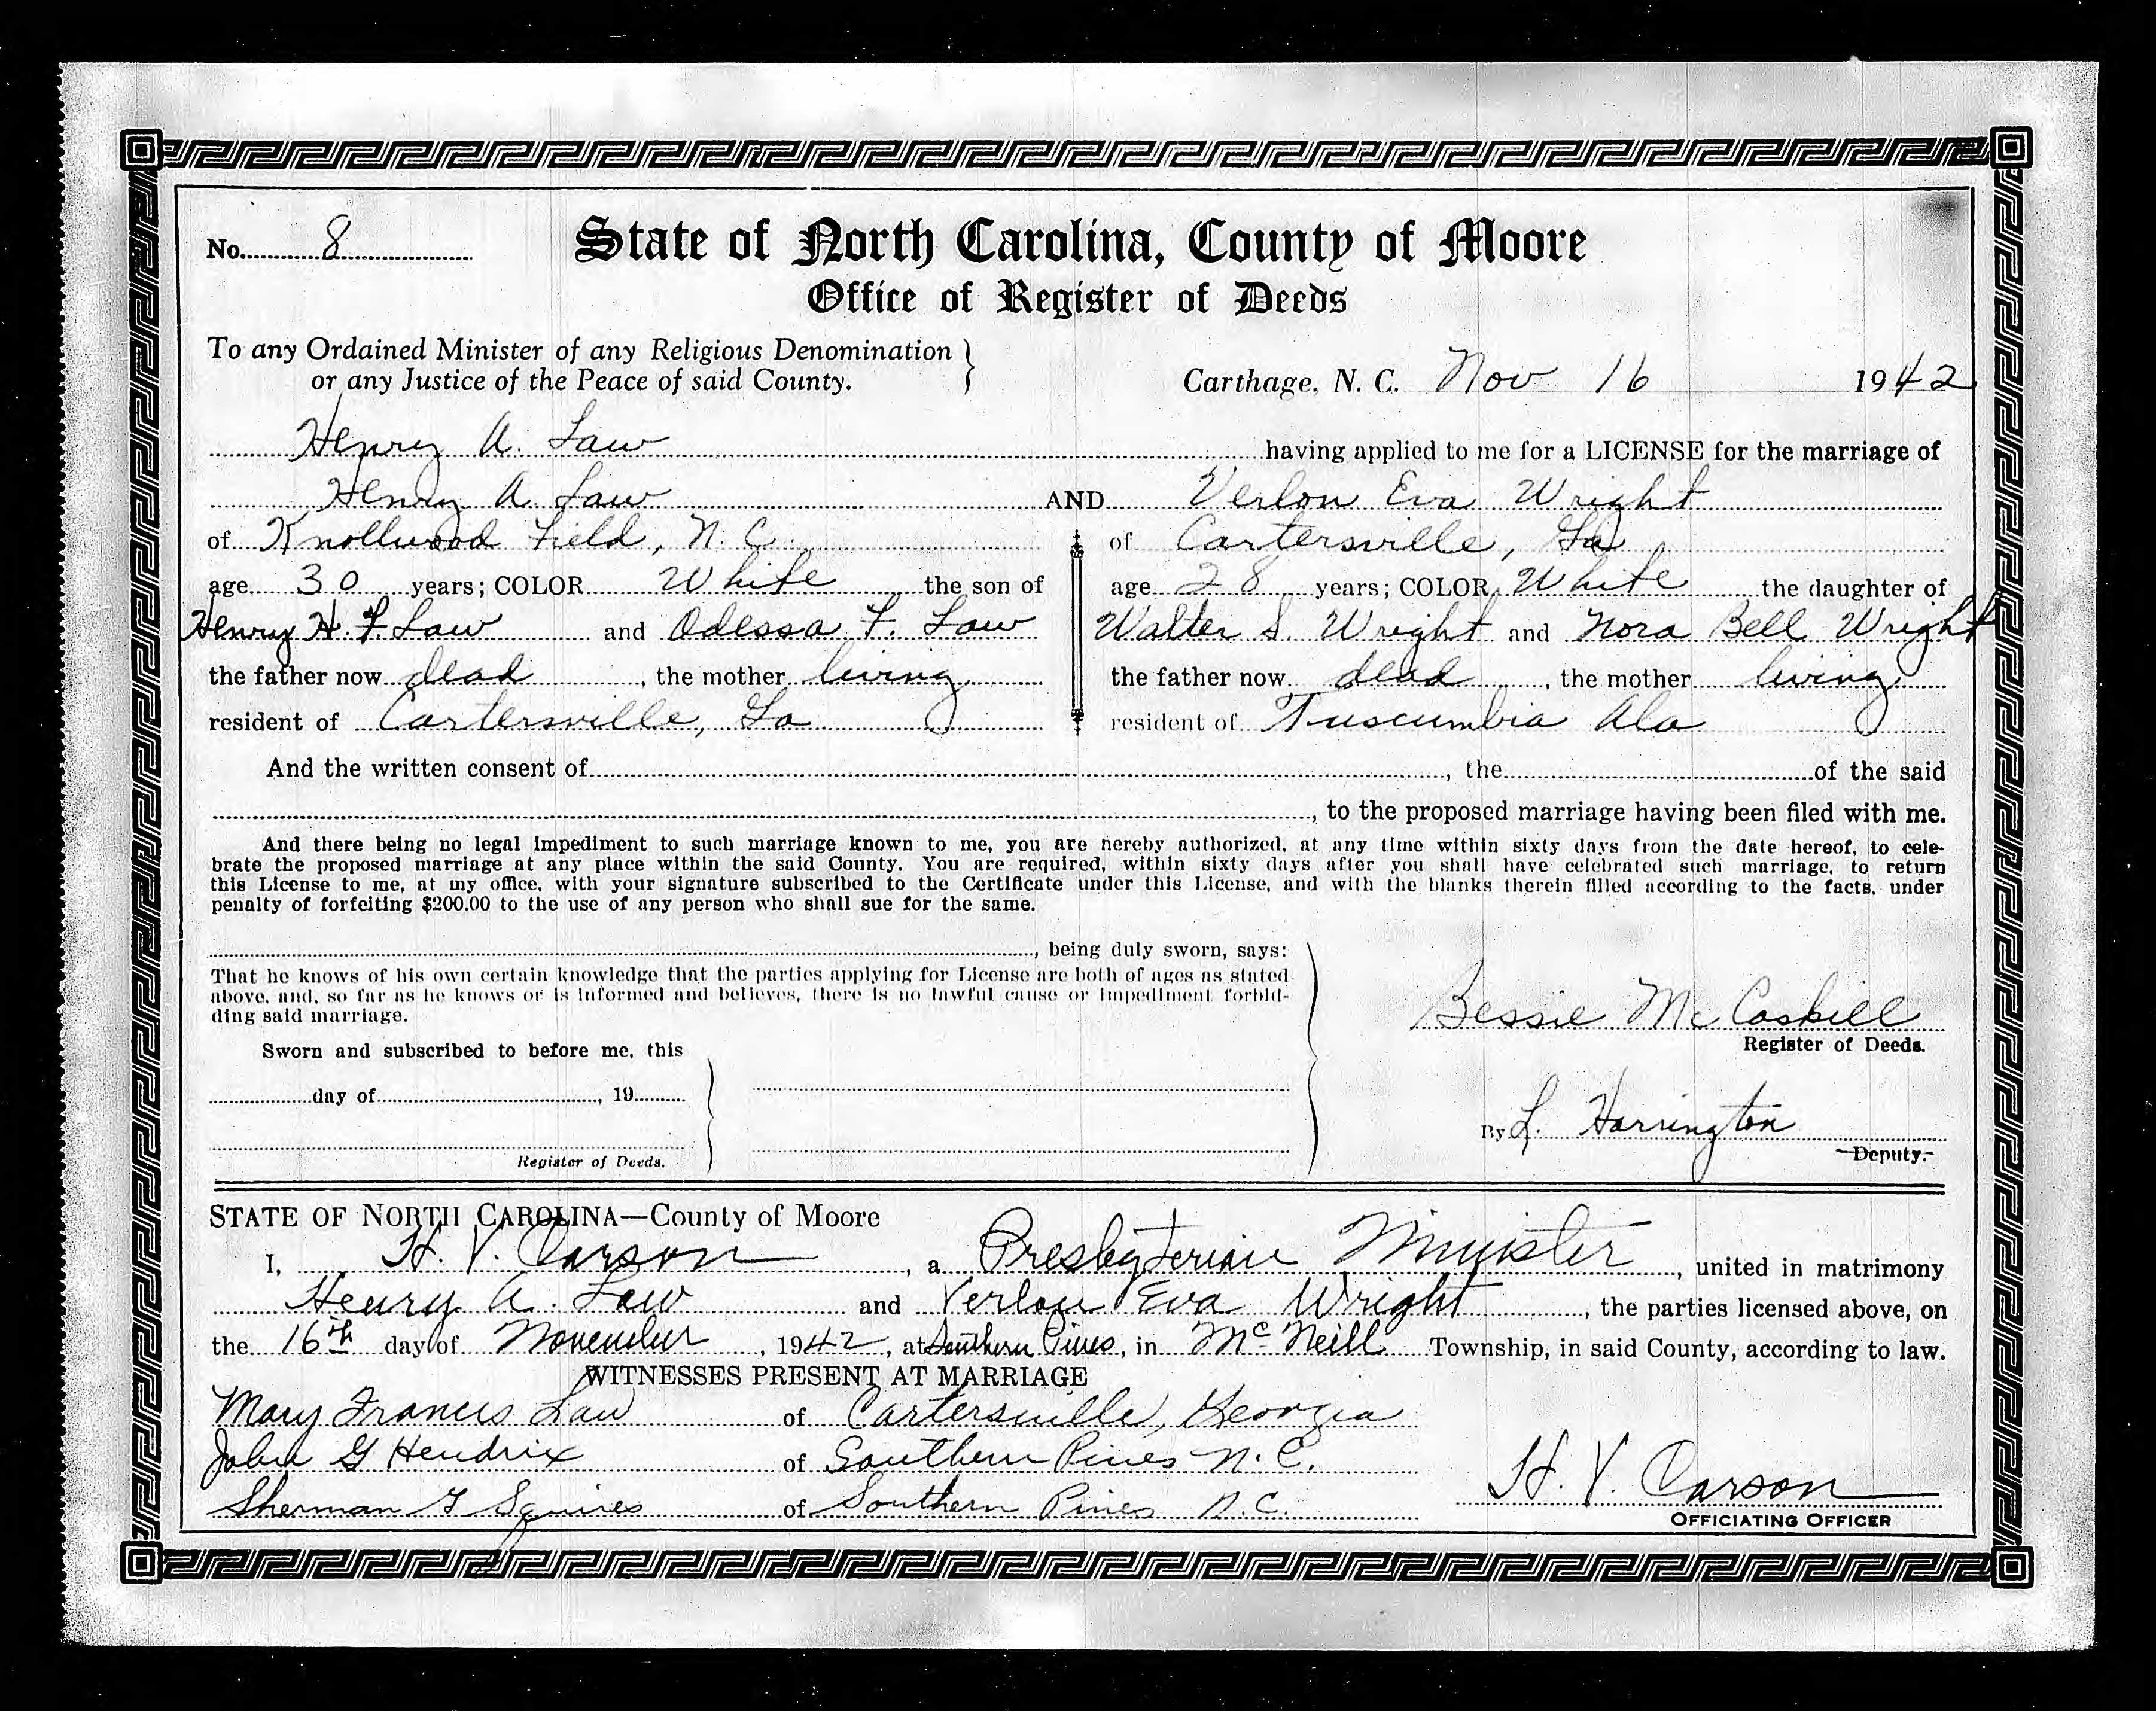 No. 8
State of North Carolina, County of Moore
Office of Register of Deeds
To any Ordained Minister of any Religious Denomination
or any Justice of the Peace of said County.
Carthage, N. C. Nov 16 1942
Henry A. Law having applied to me for a LICENSE for the marriage of
Henry A. Law AND Verlon Eva Wright
of Knollwood Field, N. C. of Cartersville, Ga
age 30 years; COLOR White the son of age 28 years; COLOR White the daughter of
Henry H. F. Law and Odessa F. Law Walter S. Wright and Nora Bell Wright
the father now dead, the mother living the father now dead, the mother living
resident of Cartersville, Ga resident of Tuscumbia Ala
And the written consent of , the of the said
, to the proposed marriage having been filed with me.
And there being no legal impediment to such marriage known to me, you are hereby authorized, at any time within sixty days from the date hereof, to cele-
brate the proposed marriage at any place within the said County. You are required, within sixty days after you shall have celebrated such marriage, to return
this License to me, at my office, with your signature subscribed to the Certificate under this License, and with the blanks therein filled according to the facts, under
penalty of forfeiting $200.00 to the use of any person who shall sue for the same.
, being duly sworn, says:
That he knows of his own certain knowledge that the parties applying for License are both of ages as stated
above, and, so far as he knows or is informed and believes, there is no lawful cause or impediment forbid-
ding said marriage.
Sworn and subscribed to before me, this
day of , 19
Register of Deeds.
Bessie McCaskill
Register of Deeds.
By L. Harrington
Deputy.
STATE OF NORTH CAROLINA—County of Moore
I, H. V. Carson, a Presbyterian Minister, united in matrimony
Henry A. Law and Verlon Eva Wright, the parties licensed above, on
the 16th day of November, 1942, at Southern Pines, in McNeill Township, in said County, according to law.
WITNESSES PRESENT AT MARRIAGE
Mary Francis Law of Cartersville, Georgia
John G Hendrix of Southern Pines N. C.
Sherman F Squires of Southern Pines N.C.
H. V. Carson
OFFICIATING OFFICER